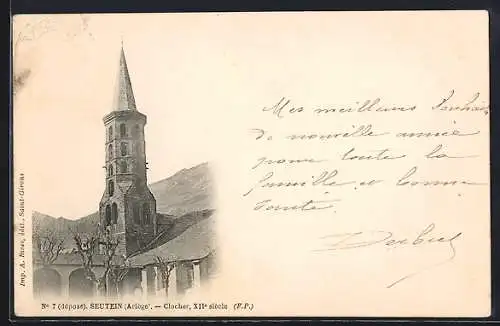 Mes meilleurs souhaits
de nouvelle année
pour toute la
famille et bonne
Santé
Imp. A. Rives, édit., Saint-Girons
Nº 7 (déposé). SEUTEIN (Ariège). — Clocher, XIIe siècle (E.P.)